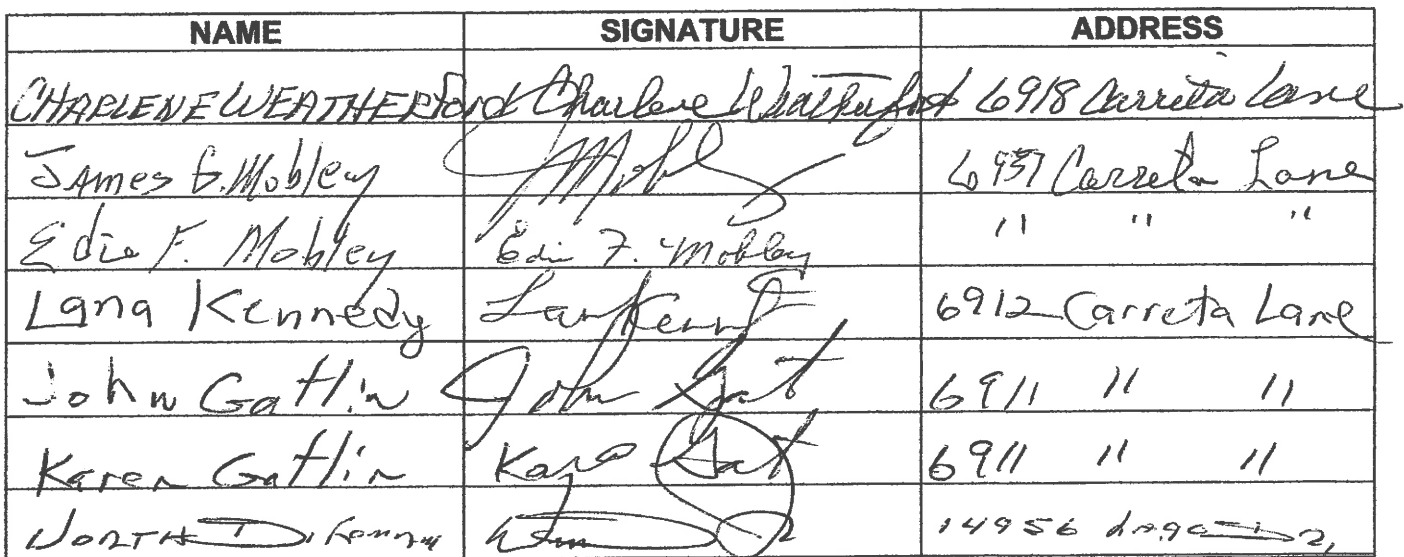 NAME SIGNATURE ADDRESS
CHARLENE WEATHERFord Charlene Weatherford 6918 Carreta Lane
James G. Mobley JMobley 6957 Carreta Lane
Edie F. Mobley Edie F. Mobley " " "
Lana Kennedy Lana Kenn 6912 Carreta Lane
John Gatlin John Gat 6911 " "
Karen Gatlin Kar Gat 6911 " "
14956